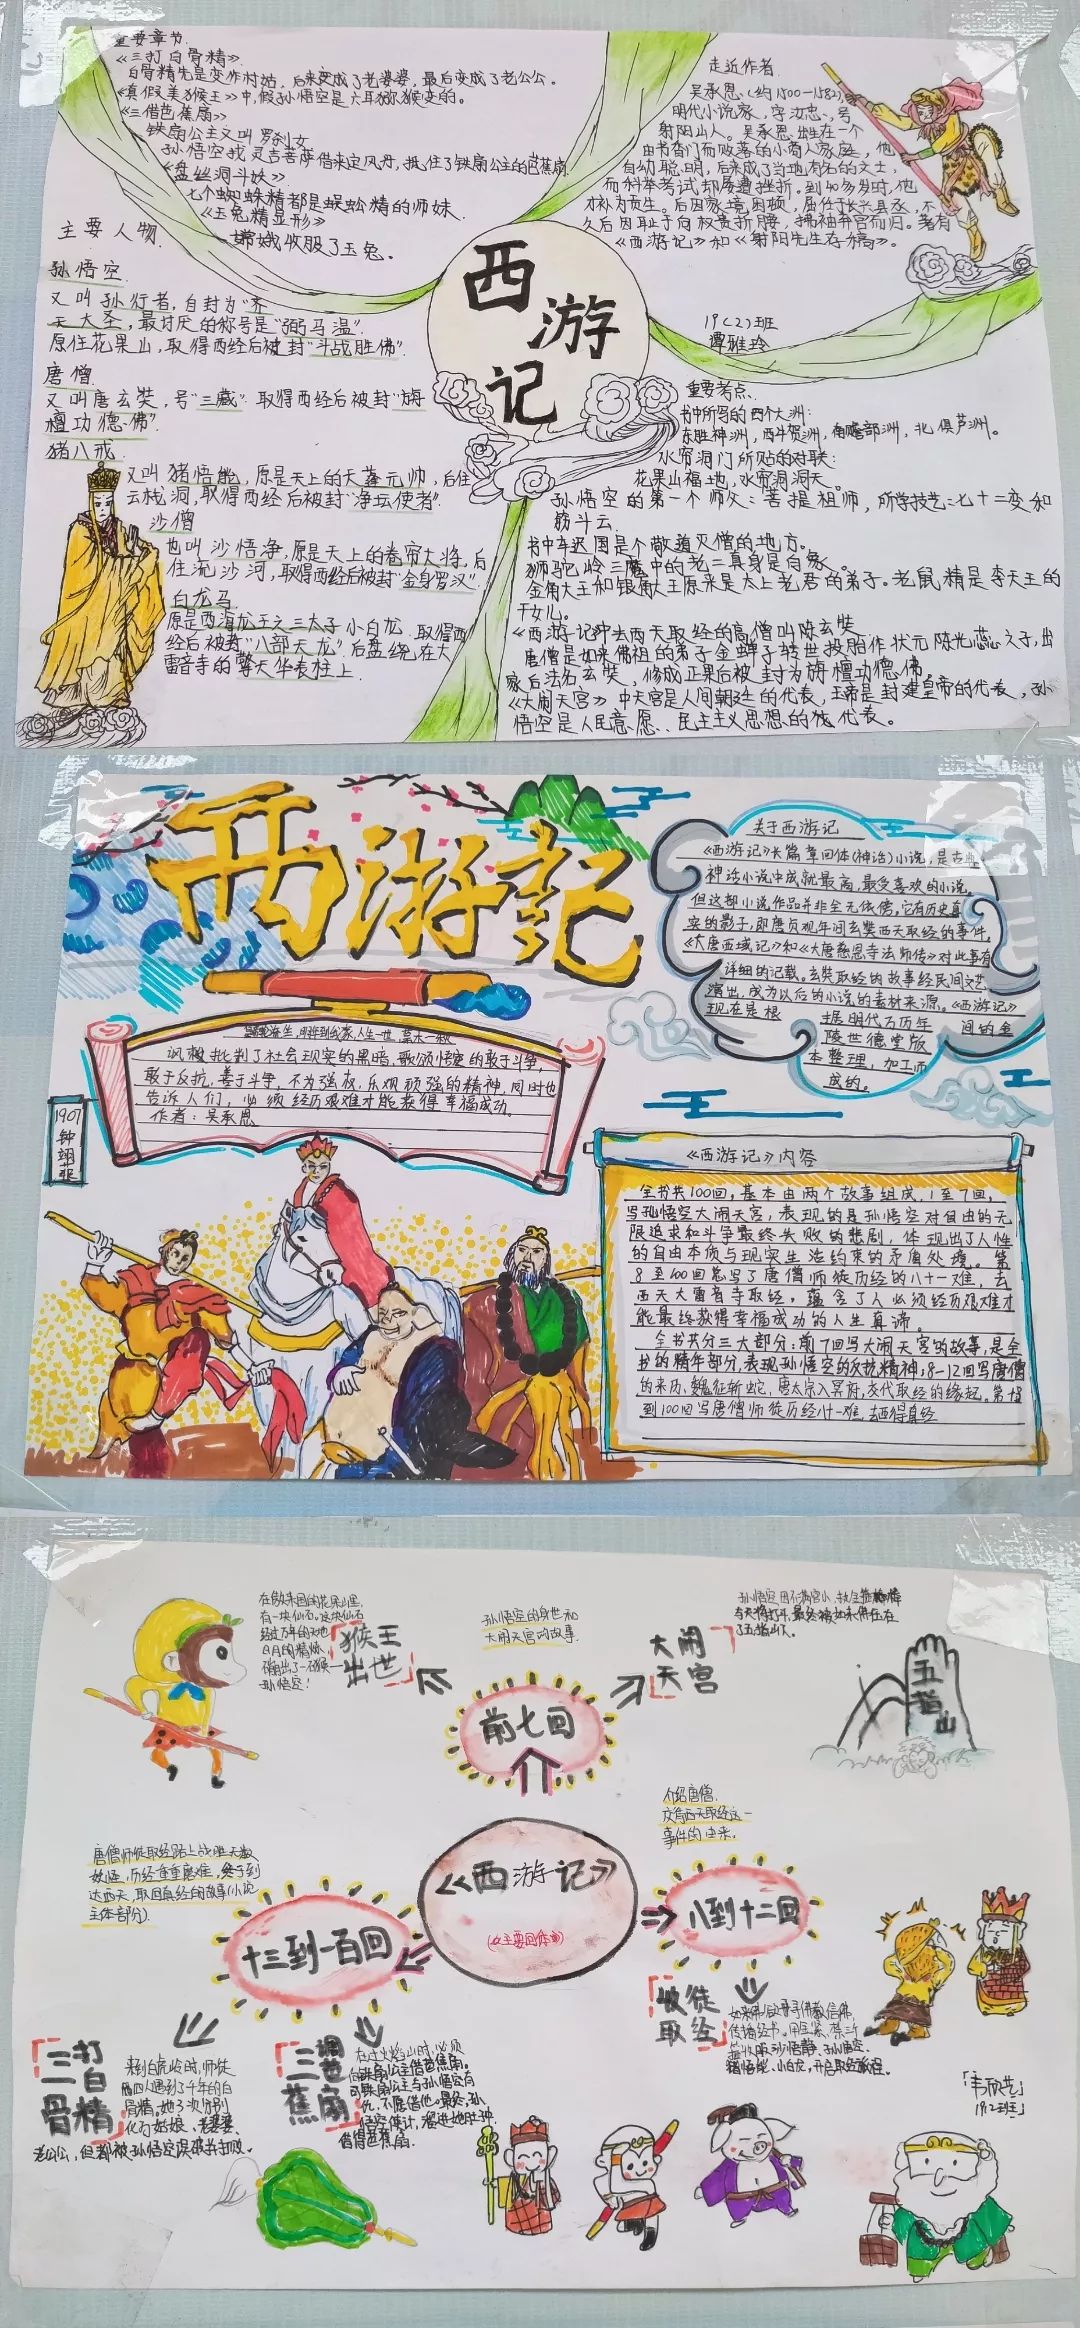 重要章节
《三打白骨精》
白骨精先是变作村姑，后来变成了老婆婆，最后变成了老公公。
《真假美猴王》中，假孙悟空是六耳猕猴变的。
《三借芭蕉扇》
铁扇公主又叫罗刹女
孙悟空找灵吉菩萨借来定风丹，抵住了铁扇公主的芭蕉扇
《盘丝洞斗妖》
七个蜘蛛精都是蜈蚣精的师妹.
《玉兔精显形》
嫦娥收服了玉兔。
主要人物
孙悟空
又叫孙行者，自封为"齐
天大圣，最讨厌的称号是"弼马温".
原住花果山，取得西经后被封"斗战胜佛".
唐僧
又叫唐玄奘，号"三藏".取得西经后被封"旃
檀功德佛".
猪八戒
又叫猪悟能，原是天上的天蓬元帅，后住
云栈洞，取得西经后被封"净坛使者".
沙僧
也叫沙悟净，原是天上的卷帘大将，后
住流沙河，取得西经后被封"金身罗汉".
白龙马
原是西海龙王之三太子小白龙.取得西
经后被封"八部天龙"后盘绕在大
雷音寺的擎天华表柱上.
西游记
走近作者
吴承恩(约1500—1582)，
明代小说家，字汝忠、号
射阳山人。吴承恩出生在一个
由书香门而败落的小商人家庭，他
自幼聪明，后来成了当地有名的文士，
而科举考试却屡遭挫折。到40多岁时，他
才补为贡生。后因家境困顿，屈任长兴县丞，不
久后因耻于向权贵折腰，拂袖弃官而归。著有
《西游记》和《射阳先生存稿》。
19(2)班
谭雅玲
重要考点、
书中所写的四个大洲：
东胜神洲，西牛贺洲，南赡部洲，北俱芦洲。
水帘洞门所贴的对联：
花果山福地，水帘洞洞天。
孙悟空的第一个师父：菩提祖师，所学技艺：七十二变和
筋斗云.
书中车迟国是个敬道灭僧的地方。
狮驼岭三魔中的老二真身是白象。
金角大王和银角大王原来是太上老君的弟子。老鼠精是李天王的
干女儿。
《西游记》中去西天取经的高僧叫陈玄奘
唐僧是如来佛祖的弟子金蝉子转世投胎作状元陈光蕊之子，出
家后法名玄奘，修成正果后被封为旃檀功德佛。
《大闹天宫》中天宫是人间朝廷的代表，玉帝是封建皇帝的代表，孙
悟空是人民意愿、民主主义思想的代表。
西游记
人生一世，草木一秋
讽刺批判了社会现实的黑暗，歌颂悟空的敢于斗争，
敢于反抗，善于斗争，不为强权，乐观顽强的精神，同时也
告诉人们，必须经历艰难才能获得幸福成功。
作者：吴承恩
1907
钟
翊
菲
关于西游记
《西游记》长篇章回体(神话)小说，是古典
神话小说中成就最高，最受喜欢的小说。
但这部小说作品并非全无依傍，它有历史真
实的影子，即唐贞观年间玄奘西天取经的事件，
《大唐西域记》和《大唐慈恩寺法师传》对此事有
详细的记载。玄奘取经的故事经民间文艺
演出，成为以后的小说的素材来源。《西游记》
现在是根据明代万历年间的金
陵世德堂版
本整理，加工而
成的。
《西游记》内容
全书共100回，基本由两个故事组成，1至7回，
写孙悟空大闹天宫，表现的是孙悟空对自由的无
限追求和斗争最终失败的悲剧，体现出了人性
的自由本质与现实生活约束的矛盾处境。第
8至100回总写了唐僧师徒历经的八十一难，去
西天大雷音寺取经，蕴含了人必须经历艰难才
能最终获得幸福成功的人生真谛。
全书共分三大部分：前7回写大闹天宫的故事，是全
书的精华部分，表现孙悟空的反抗精神；8-12回写唐僧
的来历、魏征斩蛇、唐太宗入冥府，交代取经的缘起。第13
到100回写唐僧师徒历经八十一难，去西得真经
在傲来国的花果山里，
有一块仙石。这块仙石
经过万年的天地
日月的精炼，
孙悟空！
猴王
出世
孙悟空的身世和
大闹天宫的故事.
大闹
天宫
了五指山下。
五指山
前七回
介绍唐僧.
交代西天取经这一
事件的由来.
唐僧师徒取经路上战胜无数
妖怪，历经重重磨难，终于到
达西天，取回真经的故事(小说
主体部分).
《西游记》
十三到一百回
八到十二回
收徒
取经
三打
白
骨精
来到白虎岭时，师徒
四人遇到了千年的白
骨精。她3次分别
化为姑娘、老婆婆、
老公公，但都被孙悟空识破并打败。
三调
芭
蕉扇
在过火焰山时，必须
向铁扇公主借芭蕉扇.
可铁扇公主与孙悟空有
仇，不愿借他。最终，孙
悟空使计，溜进她肚中.
借得芭蕉扇.
「韦欣芝」
1912班